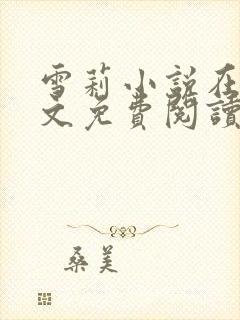 雪莉小说在
文免費閱讀
桑美